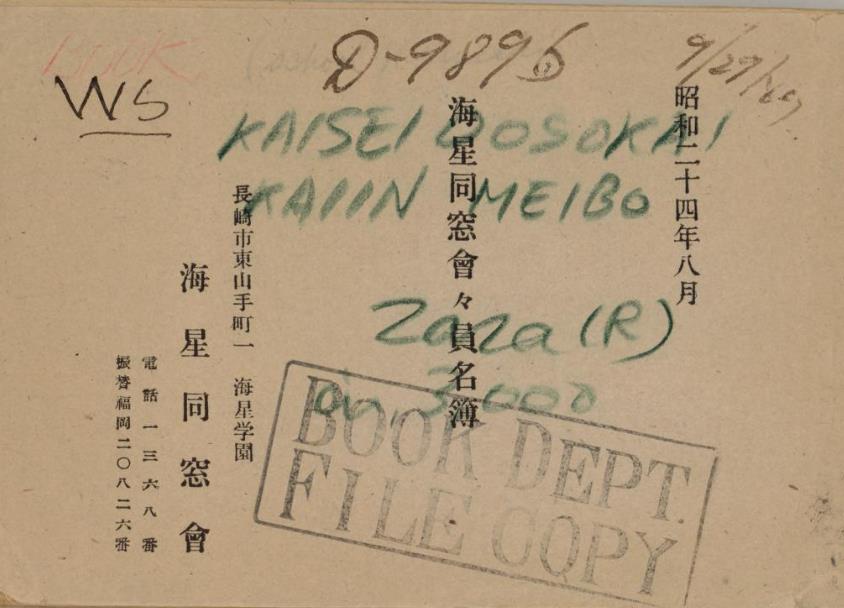 BOOK
D-9896
9/29/49
WS
昭和二十四年八月
海星同窓會々員名簿
KAISEI DOSOKAI
KAIIN MEIBO
長崎市東山手町一 海星学園
海星同窓會
電話一三六八番
振替福岡二〇八二六番
Zaza (R)
3,000
BOOK DEPT.
FILE COPY